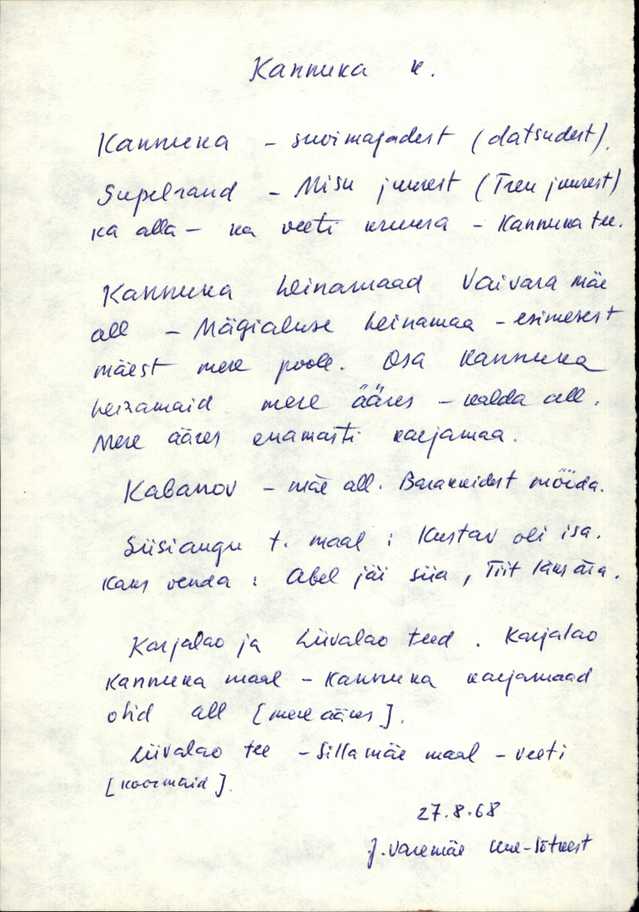 Kannuka k.
Kannuka – suvimajadest (datsudest).
Supelrand – Misu juurest (Treu juurest)
ka alla – ka veeti kruusa – Kannuka tee.
Kannuka heinamaad Vaivara mäe
all – Mägialuse heinamaa – esimesest
mäest mere poole. Osa Kannuka
heinamaid mere ääres – kalda all.
Mere ääres enamasti karjamaa.
Kabanov – mäe all. Barakkidest mööda.
Siisiangu t. maal : Kustav oli isa.
Kaks venda : Abel jäi siia, Tiit läks ära.
Karjalao ja Liivalao teed. Karjalao
Kannuka maal – Kannuka karjamaad
olid all [mere ääres].
Liivalao tee – Sillamäe maal – veeti
[koormaid].
27.8.68
J. Varemäe